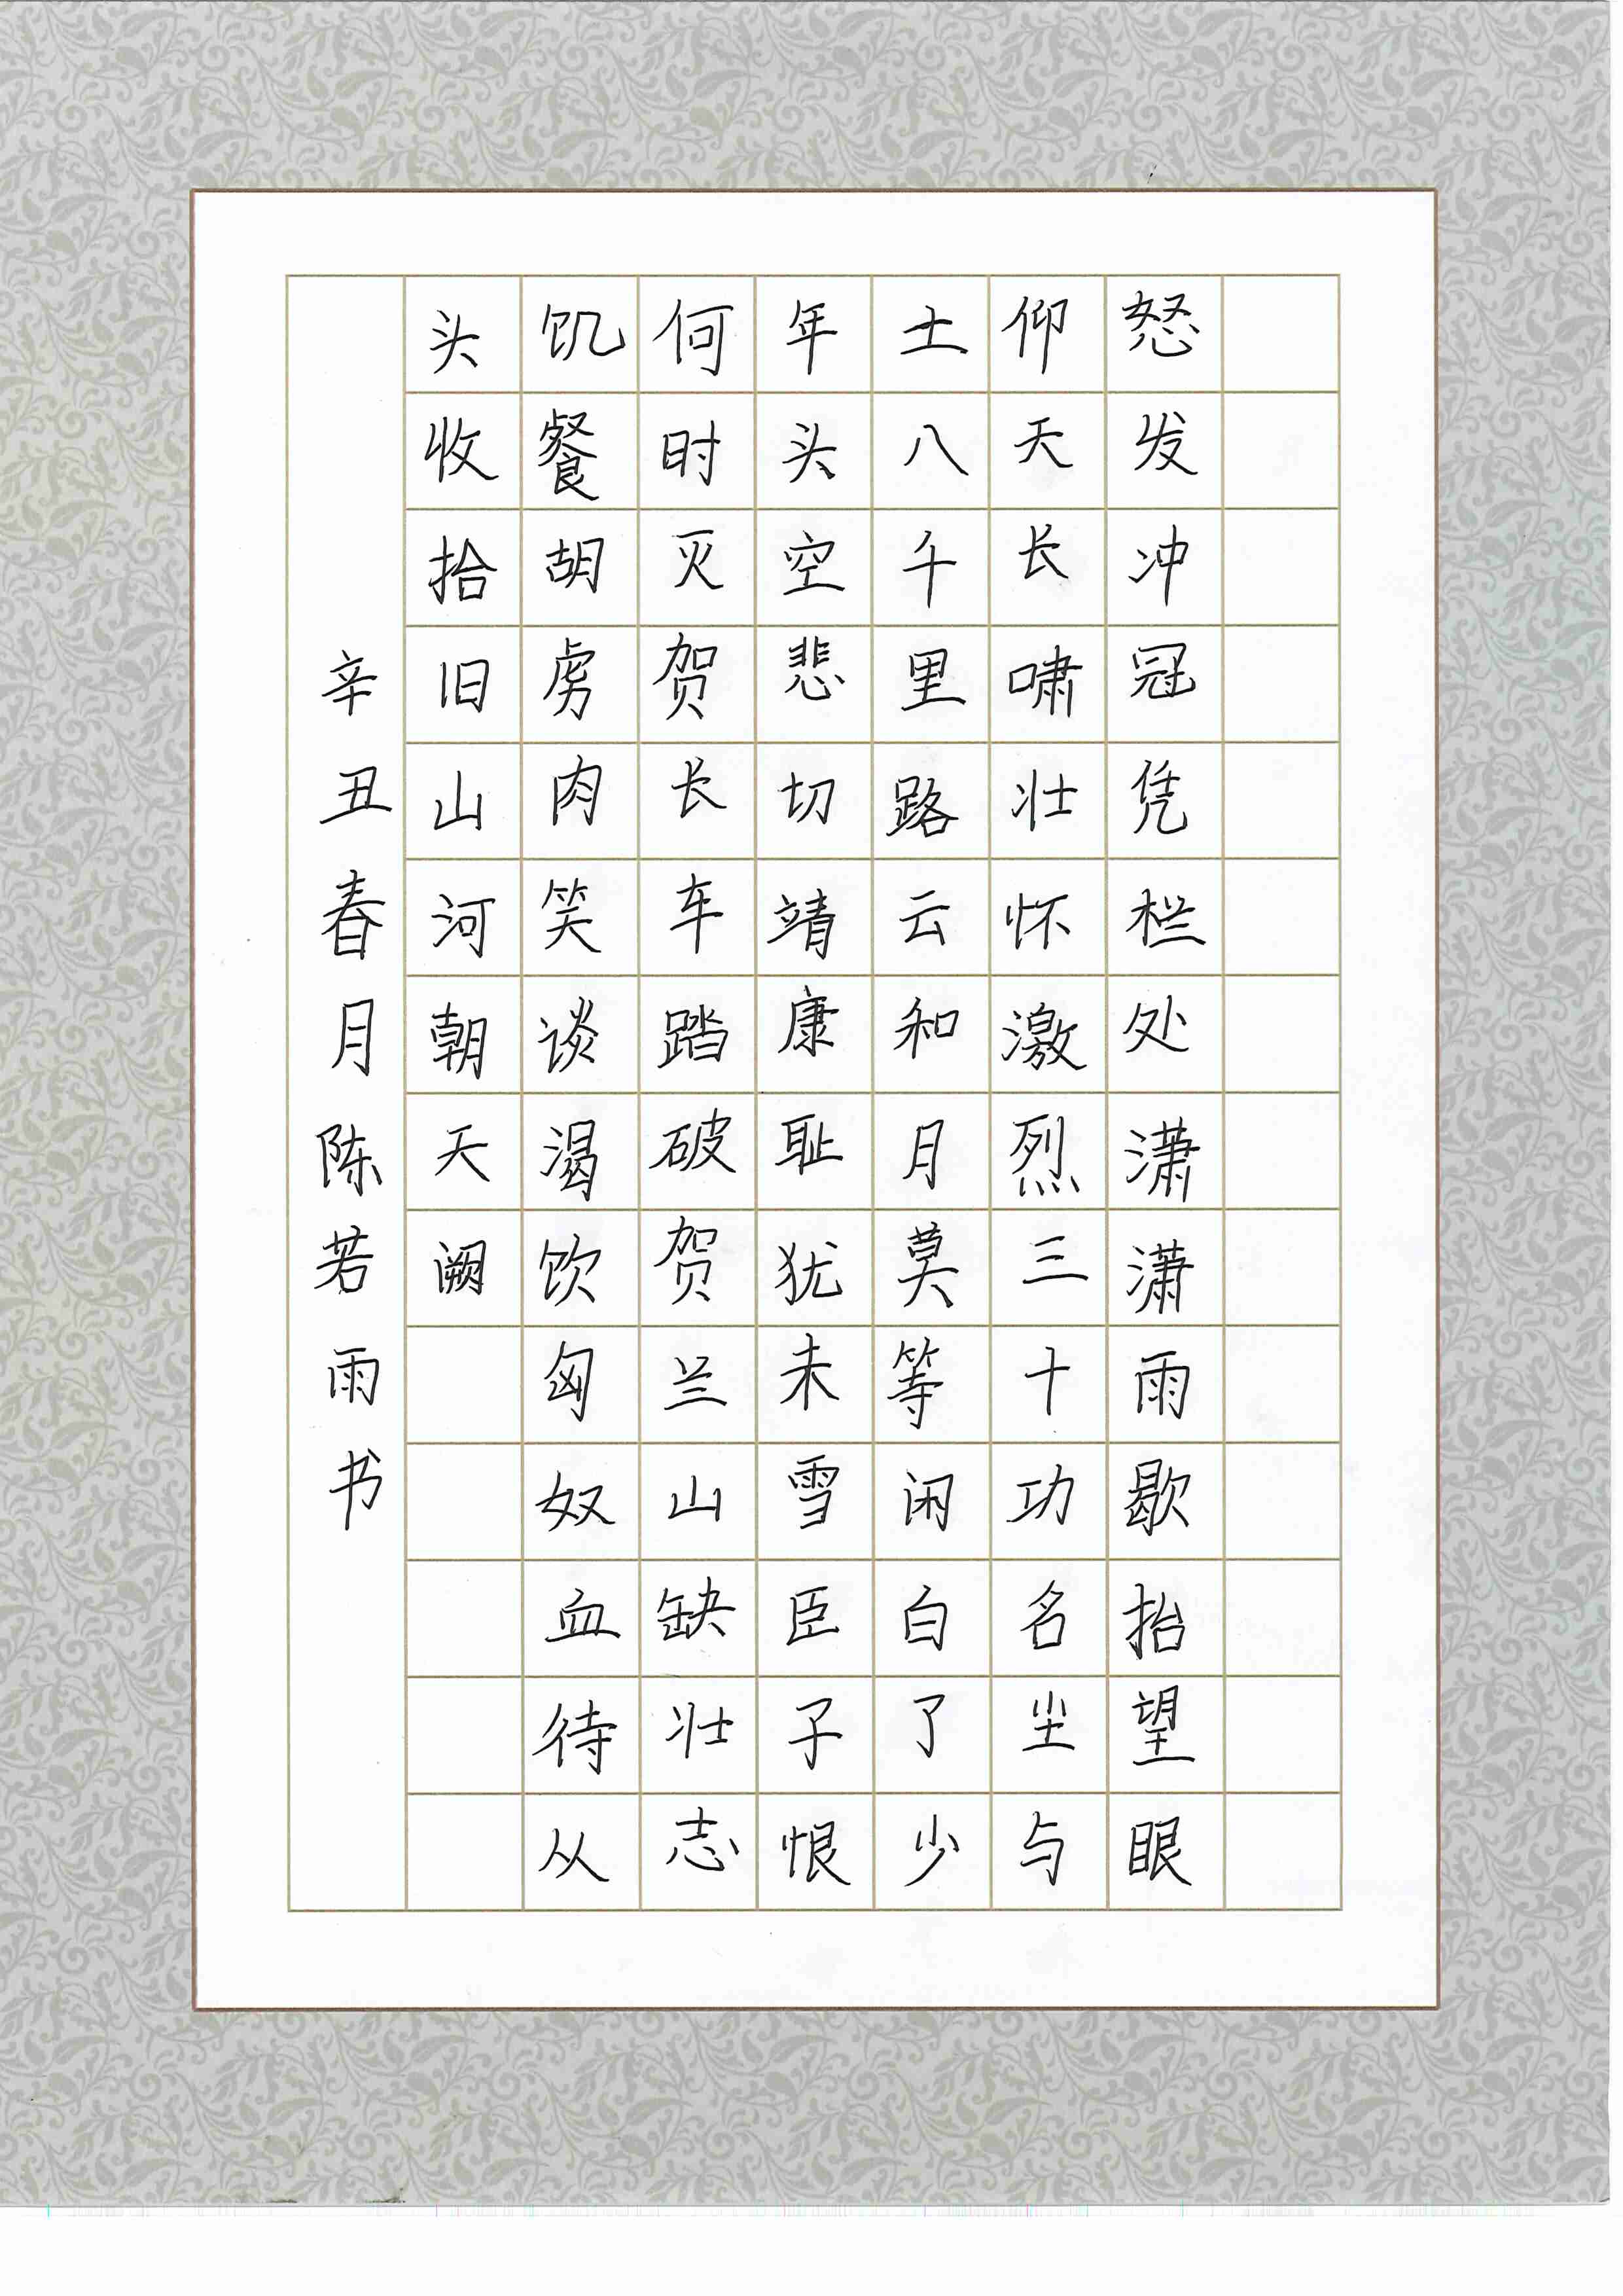 怒发冲冠凭栏处潇潇雨歇抬望眼
仰天长啸壮怀激烈三十功名尘与
土八千里路云和月莫等闲白了少
年头空悲切靖康耻犹未雪臣子恨
何时灭贺长车踏破贺兰山缺壮志
饥餐胡虏肉笑谈渴饮匈奴血待从
头收拾旧山河朝天阙
辛丑春月陈若雨书